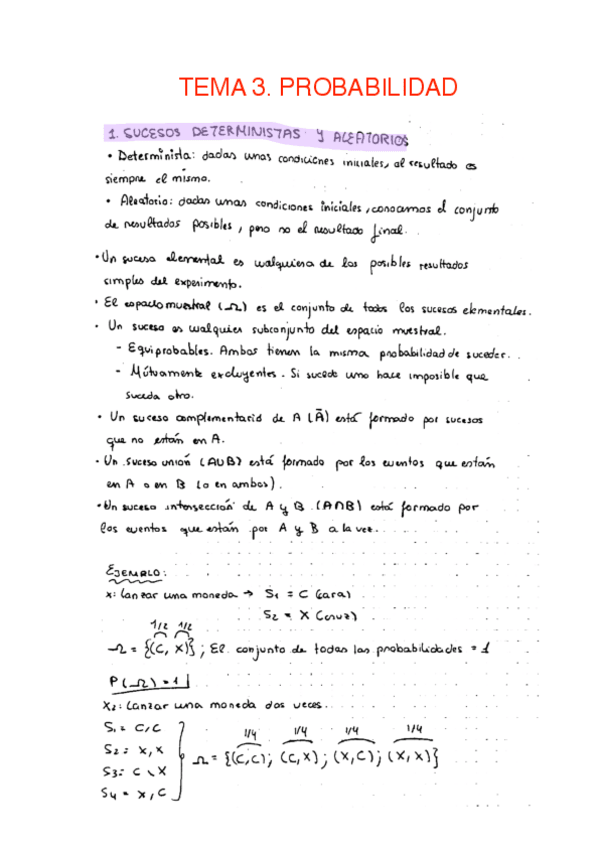 TEMA 3. PROBABILIDAD
1. SUCESOS DETERMINISTAS Y ALEATORIOS
• Determinista: dadas unas condiciones iniciales, el resultado es
siempre el mismo.
• Aleatorio: dadas unas condiciones iniciales, conocemos el conjunto
de resultados posibles, pero no el resultado final.
• Un suceso elemental es cualquiera de los posibles resultados
simples del experimento.
• El espacio muestral (Ω) es el conjunto de todos los sucesos elementales.
• Un suceso es cualquier subconjunto del espacio muestral.
- Equiprobables. Ambos tienen la misma probabilidad de suceder.
- Mútuamente excluyentes. Si sucede uno hace imposible que
suceda otro.
• Un suceso complementario de A (Ā) está formado por sucesos
que no están en A.
• Un suceso unión (A∪B) está formado por los eventos que están
en A o en B (o en ambos).
• Un suceso intersección de A y B (A∩B) está formado por
los eventos que están por A y B a la vez.
EJEMPLO:
x: Lanzar una moneda → S1 = C (cara)
S2 = X (cruz)
1/2 1/2
Ω = {(C, X)}; El conjunto de todas las probabilidades = 1
P(Ω) = 1
X2: Lanzar una moneda dos veces.
S1 = C, C
S2 = X, X
S3: C, X
S4 = X, C
1/4 1/4 1/4 1/4
Ω = {(C,C); (C,X); (X,C); (X,X)}